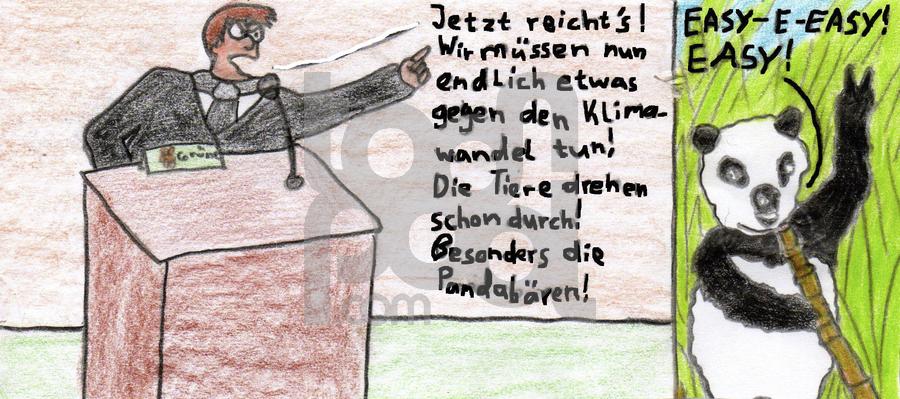 Jetzt reicht's!
Wir müssen nun
endlich etwas
gegen den Klima-
wandel tun!
Die Tiere drehen
schon durch!
Besonders die
Pandabären!
EASY-E-EASY!
EASY!
Grüne
toon
pool
.com